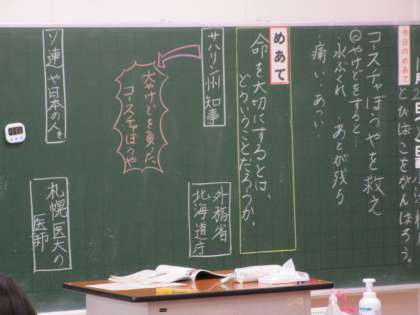 今日のめあて
ひとひとこをがんばろう。
コースチャぼうやを救え
◎やけどをすると…
・水ぶくれ ・あとが残る
・痛い・あつい
めあて
命を大切にするとは、
どういうことだろうか。
サハリン州 知事
外務省
北海道庁
大やけどを負った
コースチャぼうや
ソ連や日本の人々
札幌医大の
医師